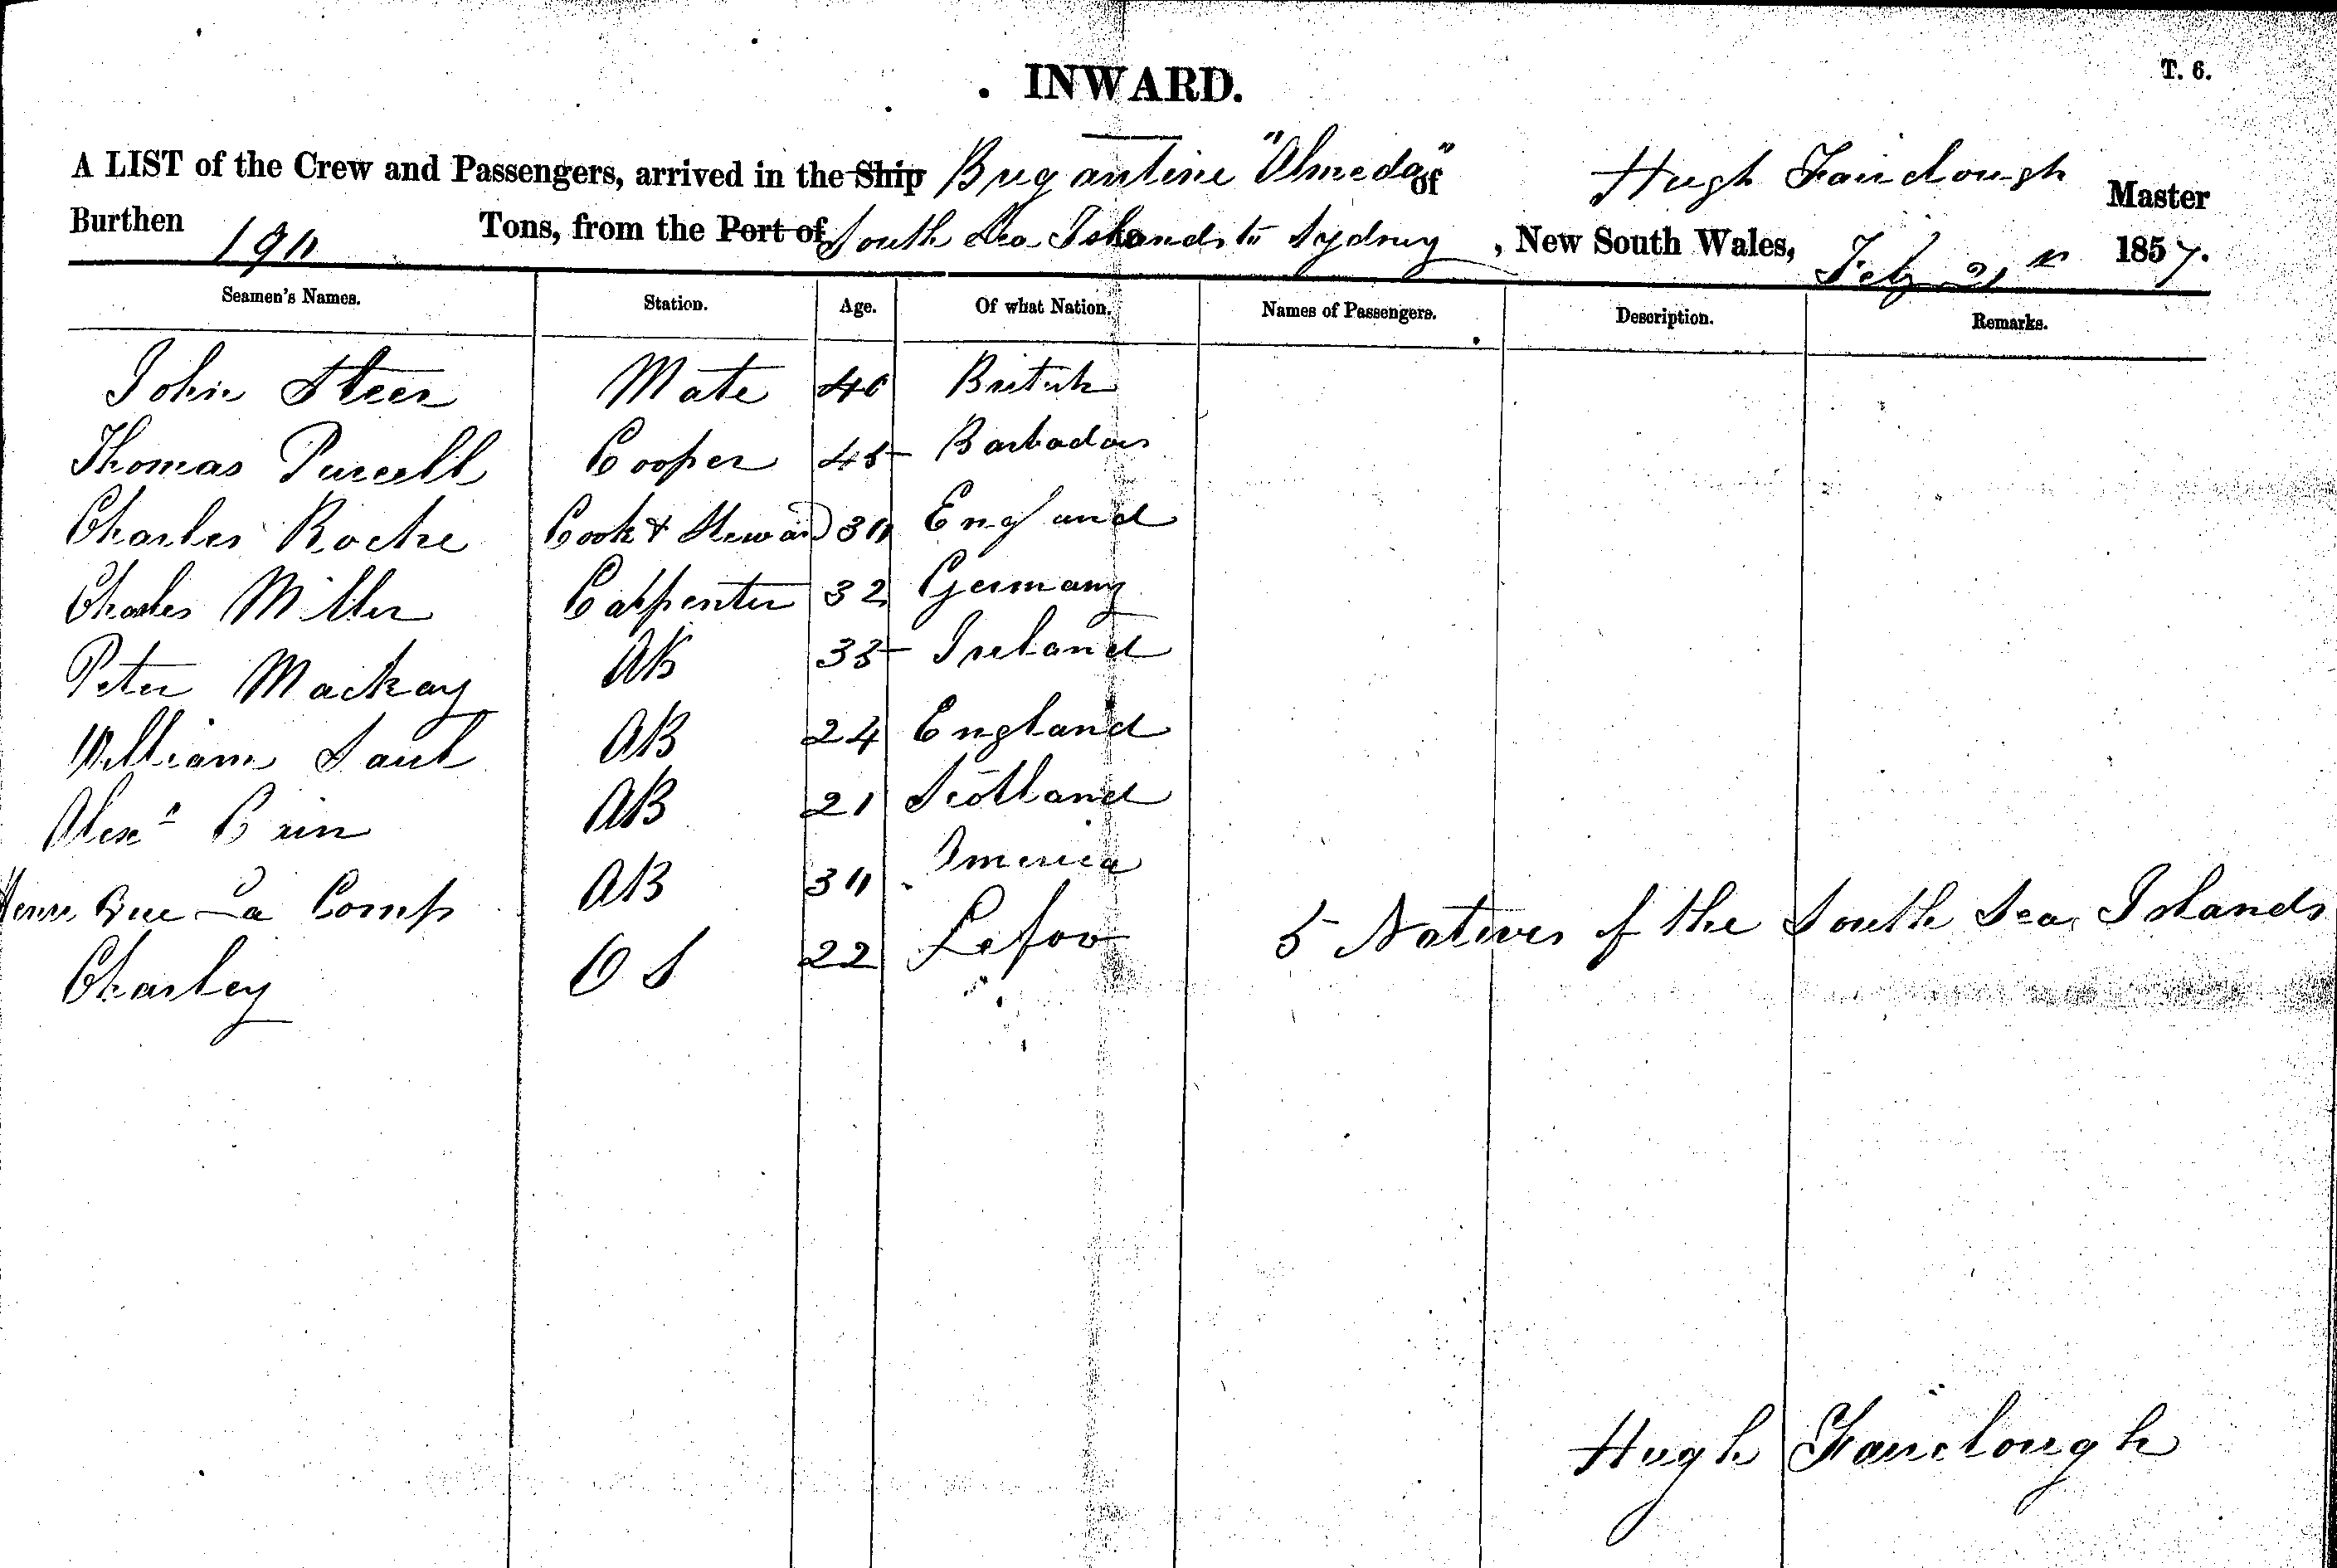 INWARD.
T. 6.
A LIST of the Crew and Passengers, arrived in the Ship Brigantine "Almeda" of Hugh Fairclough Master
Burthen 190 Tons, from the Port of South Sea Islands to Sydney, New South Wales, Feby 21st 1857.
Seamen's Names. Station. Age. Of what Nation. Names of Passengers. Description. Remarks.
John Steer Mate 40 British
Thomas Purcell Cooper 45 Barbadoes
Charles Roche Cook & Steward 30 England
Charles Miller Carpenter 32 Germany
Peter Mackay AB 35 Ireland
William Saul AB 24 England
Alexr AB 21 Scotland
La Comp AB 30 America
Charley OS 22 Lefoo 5 Natives of the South Sea Islands
Hugh Fairclough